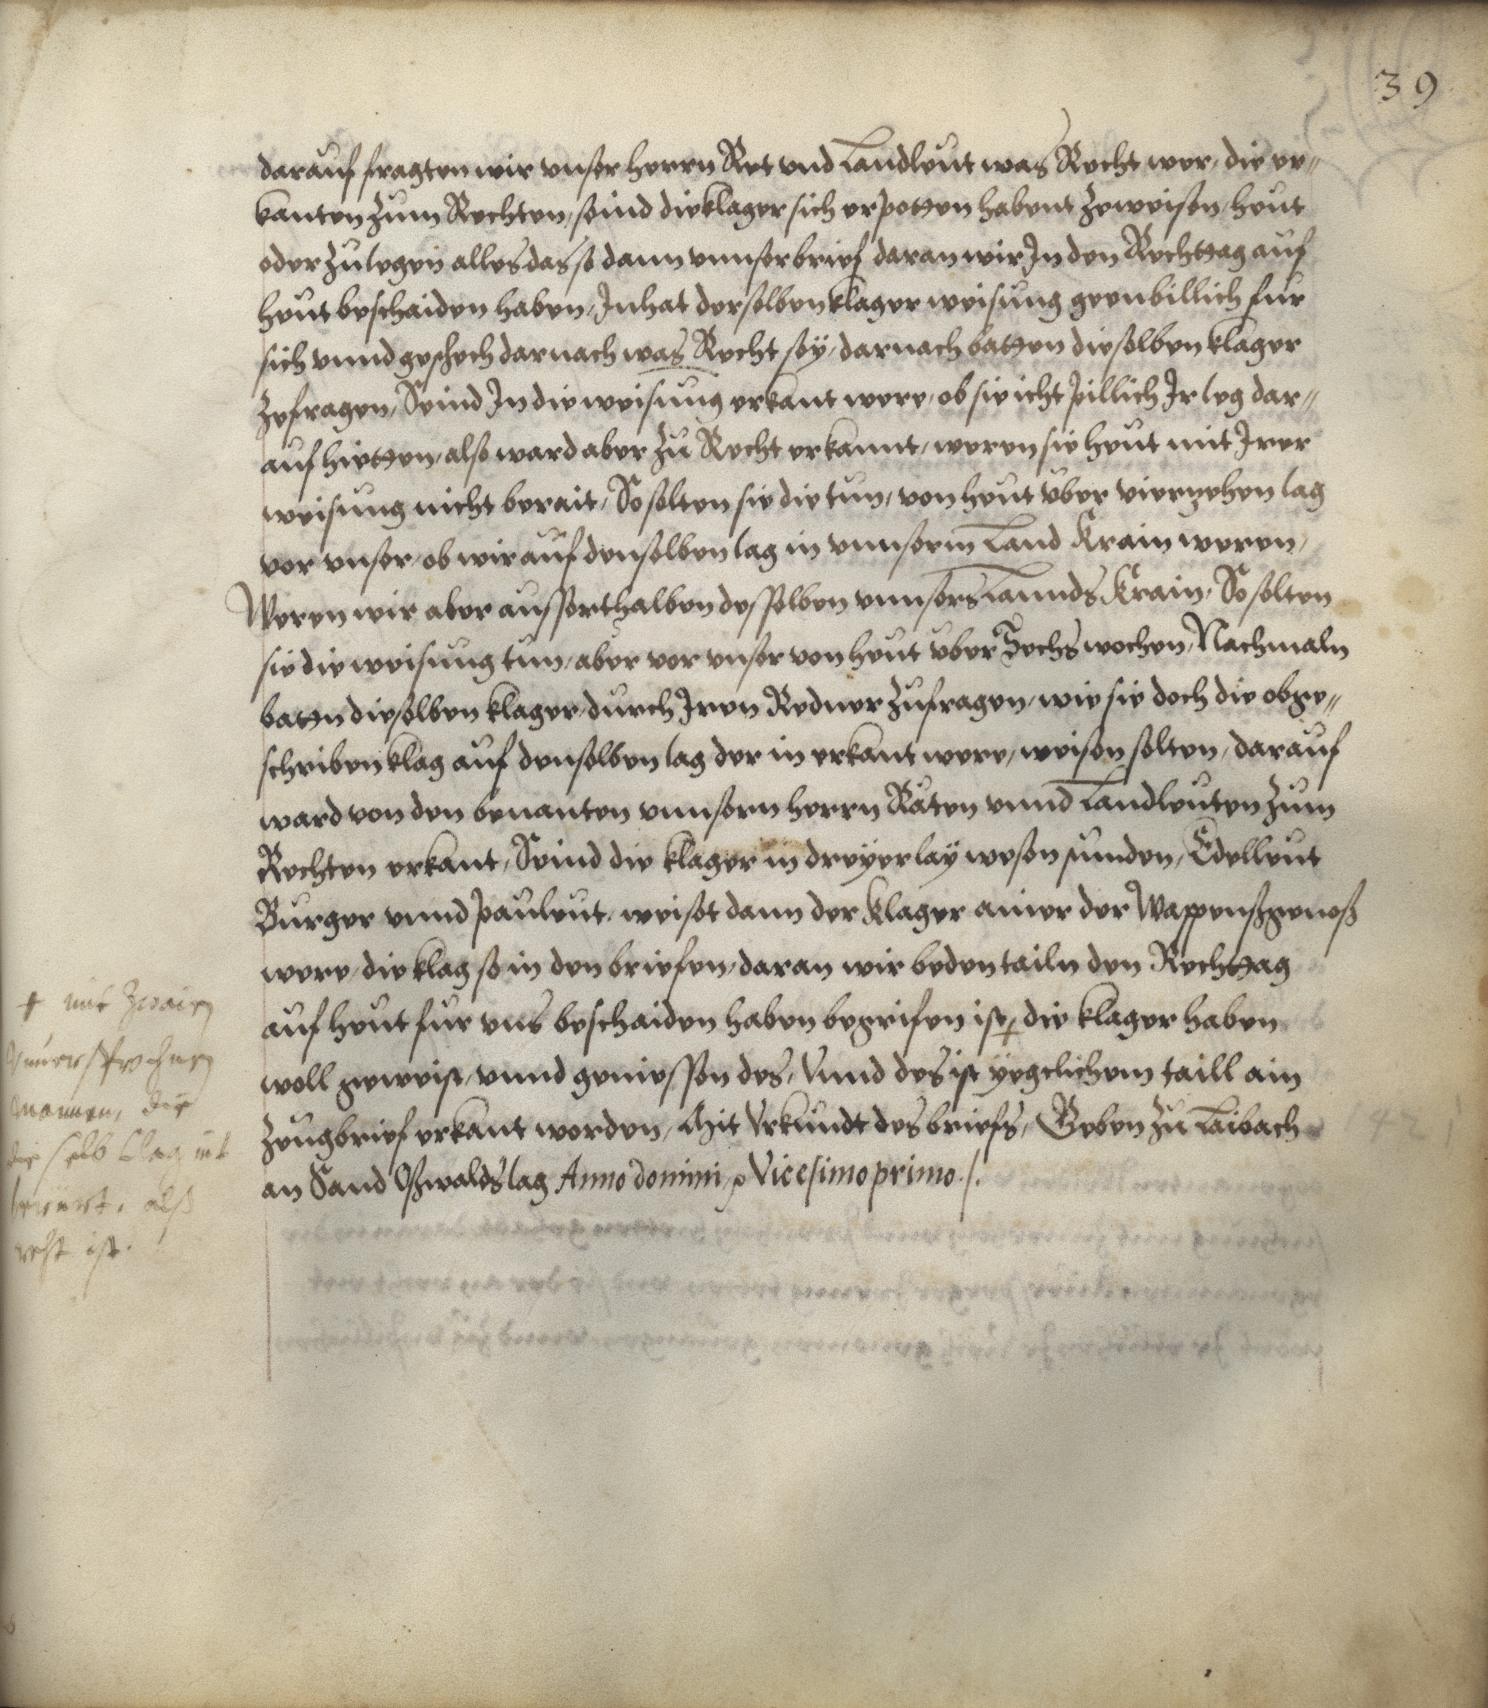 39
darauf fragten wir vnser herrn Ret vnd Landleut was Recht wer, die er„
kanten zum Rechten, seind die klager sich erpotten habent zeweisen, heut
oder zulegen alles das so dann vnnser brief daran wir In den Rechttag auf
heut beschaiden haben, Inhat derselben klager weisung geen billich fur
sich vnnd geschech darnach was Recht seÿ, darnach batten dieselben klager
zefragen, Seind In die weisung erkant were, ob sie icht pillich Ir leg dar„
auf hietten, also ward aber zu Recht erkannt, weren sie heut mit Irer
weisung nicht berait, So solten sie die tun, von heut vber viertzehen tag
vor vnser, ob wir auf denselben tag in vnnserm Land Krain weren,
Weren wir aber ausserthalben desselben vnnsers Lannds Krain, So solten
sie die weisung tun, aber vor vnser von heut vber Sechs wochen, Nachmaln
batten dieselben klager, durch Iren Redner zufragen, wie sie doch die obge„
schriben klag auf denselben tag der in erkant were, weisen solten, darauf
ward von den benanten vnnsern herrn Räten vnnd Landleuten zum
Rechten erkant, Seind die klager in dreyerlaÿ wesen sunden, Edelleut
Burger vnnd Pauleut, weiset dann der klager ainer der Wappenßgenoß
were, die klag so in den briefen, daran wir beden tailn den Rechttag
auf heut fur vns beschaiden haben begrifen ist, die klager haben
woll geweist, vnnd geniessen des, Vnnd des ist yegclichem taill ain
zeugbrief erkant worden, Mit Vrkundt des briefs, Geben zu Laibach
an Sand Oßwalds tag Anno domini, &c Vicesimo primo ./.
+ mit zwaien
mannen, die
die selb clag mit
als
recht ist.
1421